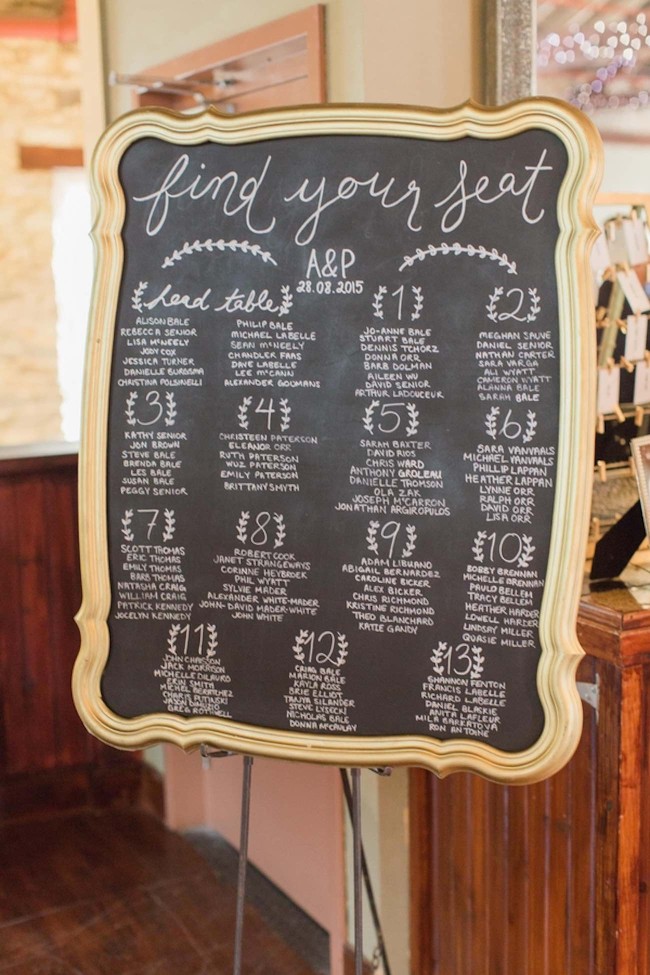 find your seat
A&P
28.08.2015
head table
ALISON BALE
REBECCA SENIOR
LISA MCNEELY
JODY COX
JESSICA TURNER
DANIELLE BURDSMA
CHRISTINA POLSINELLI
PHILIP BALE
MICHAEL LABELLE
SEAN MCNEELY
CHANDLER FAAS
DAVE LABELLE
LEE MCCANN
ALEXANDER GOUMANS
1
JO-ANNE BALE
STUART BALE
DENNIS TCHORZ
DONNA ORR
BARB DOLMAN
AILEEN WU
DAVID SENIOR
ARTHUR LADOUCEUR
2
MEGHAN SAUVE
DANIEL SENIOR
NATHAN CARTER
SARA VARGA
ALI WYATT
CAMERON WYATT
ALANNA BALE
SARAH BALE
3
KATHY SENIOR
JON BROWN
STEVE BALE
BRENDA BALE
LES BALE
SUSAN BALE
PEGGY SENIOR
4
CHRISTEEN PATERSON
ELEANOR ORR
RUTH PATERSON
WUZ PATERSON
EMILY PATERSON
BRITTANY SMYTH
5
SARAH BAXTER
DAVID RIOS
CHRIS WARD
ANTHONY GROLEAU
DANIELLE THOMSON
OLA ZAK
JOSEPH MCCARRON
JONATHAN ARGIROPULOS
6
SARA VANVAALS
MICHAEL VANVAALS
PHILLIP LAPPAN
HEATHER LAPPAN
LYNNE ORR
RALPH ORR
DAVID ORR
LISA ORR
7
SCOTT THOMAS
ERIC THOMAS
EMILY THOMAS
BARB THOMAS
NATASHA CRAIG
WILLIAM CRAIG
PATRICK KENNEDY
JOCELYN KENNEDY
8
ROBERT COOK
JANET STRANGEWAYS
CORINNE HEYBROEK
PHIL WYATT
SYLVIE MADER
ALEXANDER WHITE-MADER
JOHN-DAVID MADER-WHITE
JOHN WHITE
9
ADAM LIBUANO
ABIGAIL BERNARDEZ
CAROLINE BICKER
ALEX BICKER
CHRIS RICHMOND
KRISTINE RICHMOND
THEO BLANCHARD
KATIE GANDY
10
BOBBY BRENNAN
MICHELLE BRENNAN
PAULO BELLEM
TRACY BELLEM
HEATHER HARDER
LOWELL HARDER
LINDSAY MILLER
QUASIE MILLER
11
JOHN CHASSON
JACK MORRISON
MICHELLE DILAURO
ERIN SMITH
MICHEL
CHARIS
JASON
GREG ROTHWELL
12
CRAIG BALE
MARION BALE
KAYLA ROSS
BRIE ELLIOTT
TANYA SILANDER
STEVE LYSECKI
NICHOLAS BALE
DONNA MCAULAY
13
SHANNON FENTON
FRANCIS LABELLE
RICHARD LABELLE
DANIEL BLASKIE
ANITA LAFLEUR
MILA BARKATOVA
RON ANTOINE